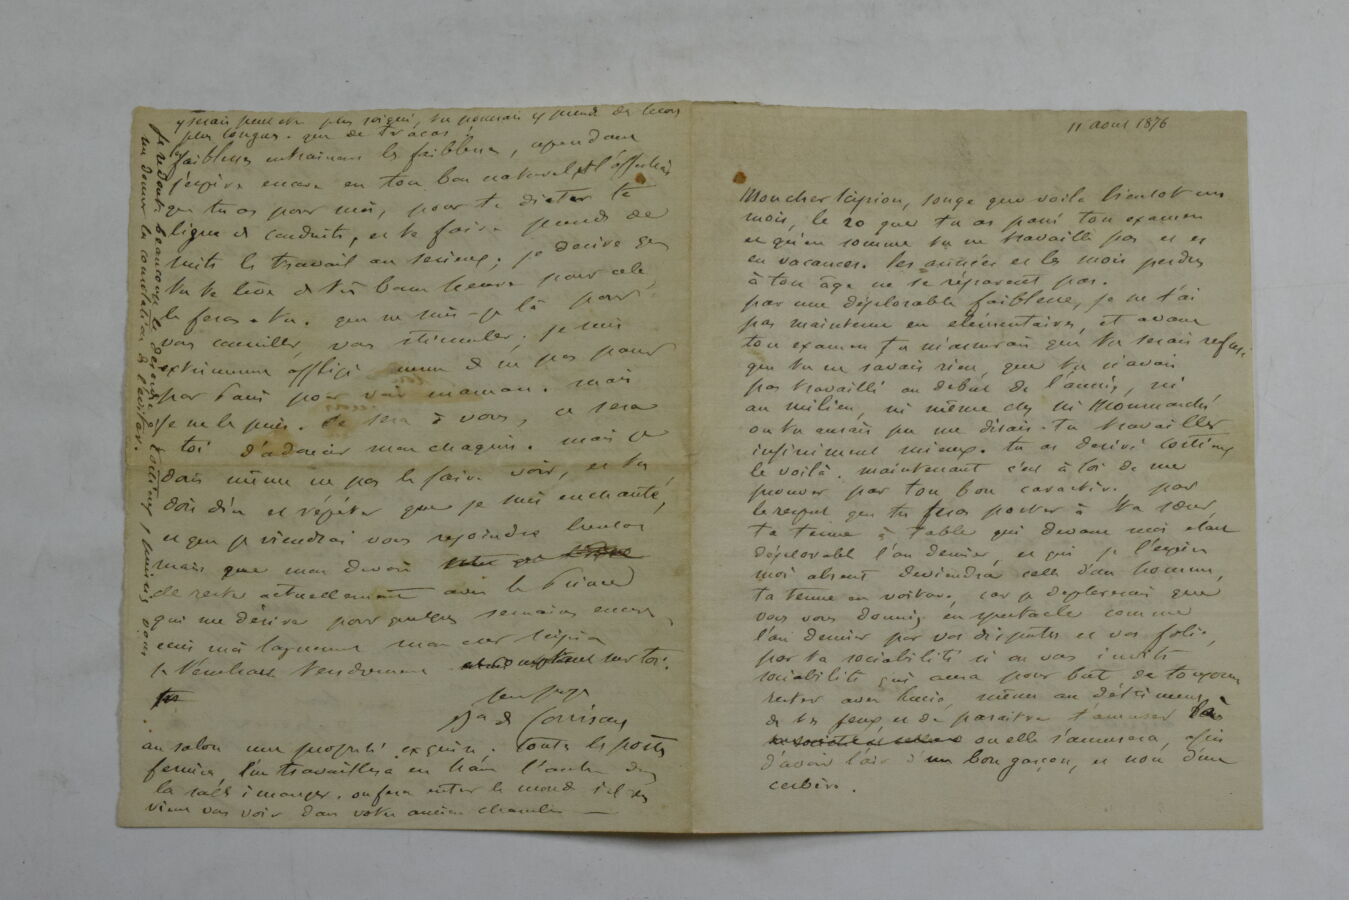 11 aout 1876
Mon cher Scipion, songe que voila bientot un
mois, le 20 que tu as passé ton examen
et qu'en somme tu ne travaille pas et es
en vacances. les années et les mois perdus
à ton âge ne se réparent pas.
par une déplorable faiblesse, je ne t'ai
pas maintenu en élémentaires, et avant
ton examen tu m'assurais que tu serais refusé
que tu ne savais rien, que tu n'avais
pas travaillé au debut de l'année, ni
au milieu, ni même chez
ou tu aurais pu me disais-tu travailler
infiniment mieux. tu as desiré
le voilà. maintenant c'est à toi de me
prouver par ton bon caractère. par
le respect que tu feras porter à ta sœur,
ta tenue à table qui devant moi etait
déplorable l'an dernier et qui je l'espère
moi absent deviendra celle d'un homme,
ta tenue en voiture, car je deplorerais que
vous vous donniez en spectacle comme
l'an dernier par vos disputes et vos folies,
par ta sociabilité si on vous invite
sociabilité qui aura pour but de toujours
rester avec Lucie, même au détriment
de tes jeux, et de paraitre t'amuser là
ou elle s'amusera, afin
d'avoir l'air d'un bon garçon, et non d'un
cerbère.
au salon une propreté exquise. Toutes les portes
fermées, l'un travaillera en haut l'autre dans
la salle à manger. on fera entrer le monde s'il
vient vous voir dans votre ancienne chambre
y serais peut etre plus soigné, tu pourrais y prendre des leçons
plus longues. que de tracas
les faiblesses entrainent les faiblesses, cependant
j'espère encore en ton bon naturel et l'affection
que tu as pour moi, pour te dicter ta
ligne de conduite, et te faire prendre de
suite le travail au serieux; je desire que
tu te lève de très bonne heure pour cela,
le feras-tu. que ne suis-je là pour
vous conseiller, vous stimuler. je suis
extrêmement affligé de ne pas pouvoir
partir pour voir maman. mais
je ne le puis. Ce sera à vous, ce sera
toi d'adoucir mon chagrin. mais je
dois même ne pas le faire voir, et tu
dois dire et répéter que je suis enchanté,
et que je viendrai vous rejoindre bientot
mais que mon devoir
de rester actuellement avec le Prince
qui me désire pour quelques semaines encore,
mon cher Scipion
je t'embrasse tendrement sur toi.
ton père
Bn de Corvisart
je redoute beaucoup
me donner la consolation de l'éviter.